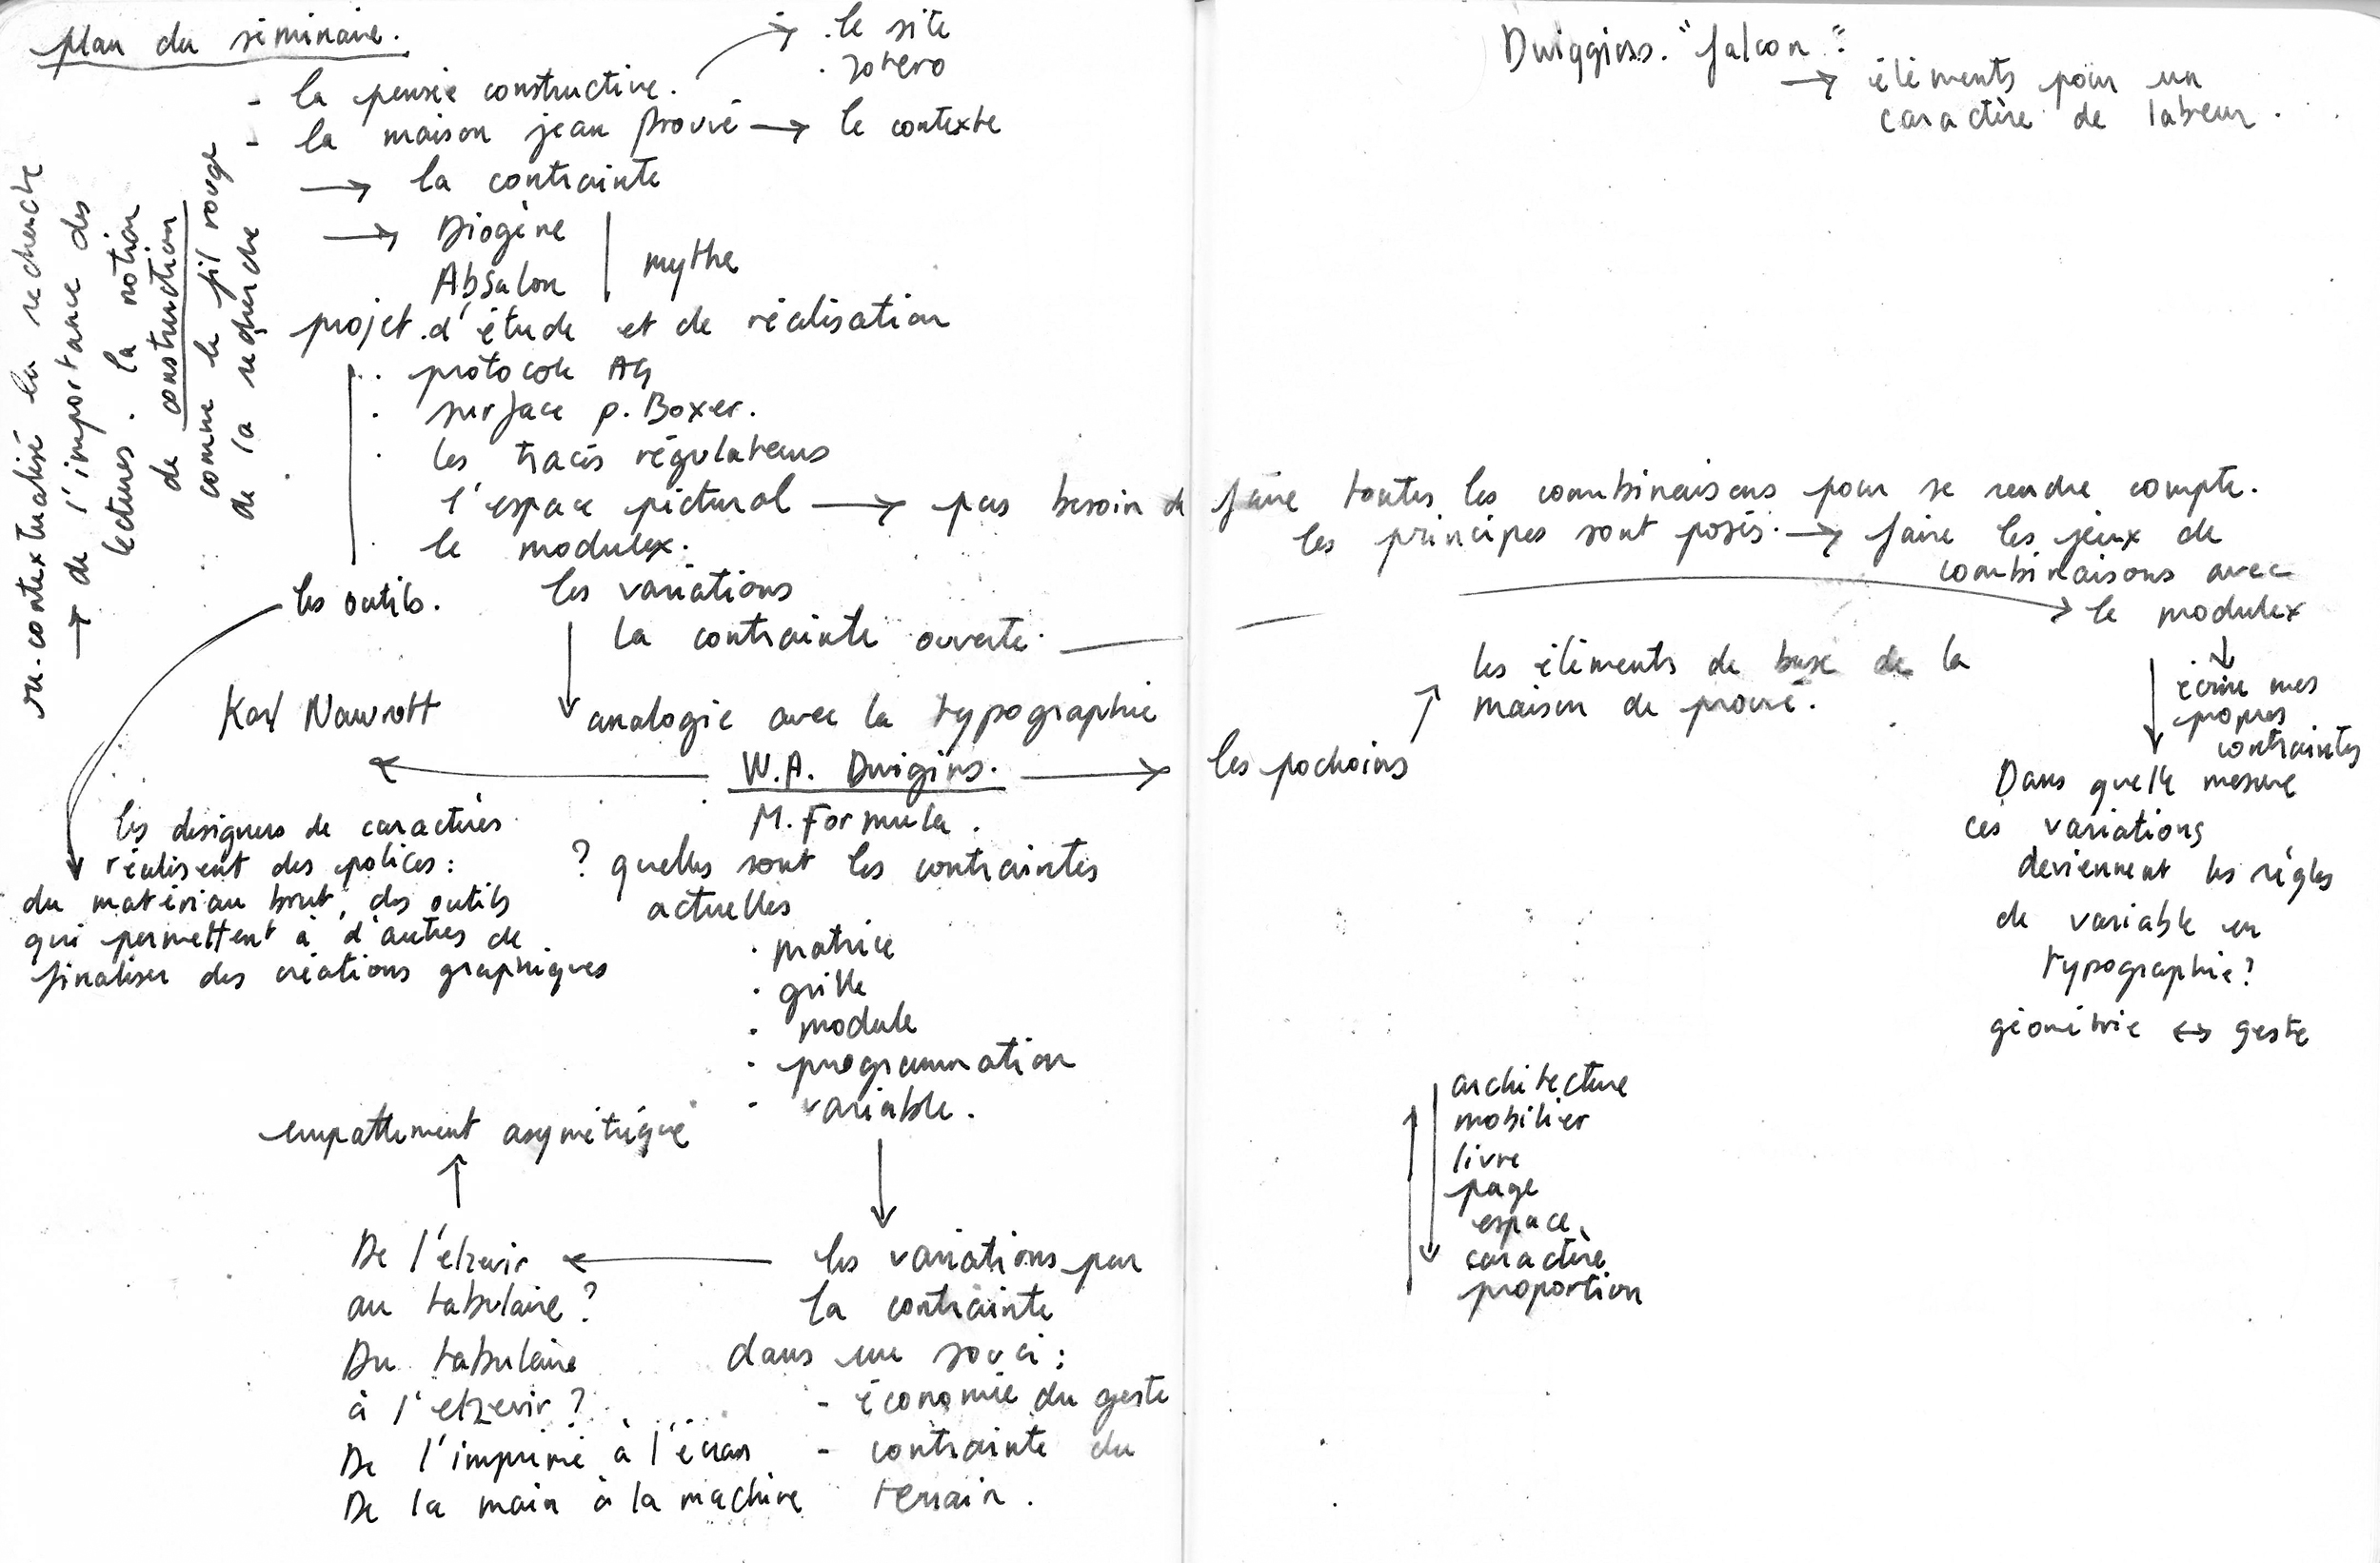 plan du séminaire.
- la pensée constructive.
. le site
. zotero
- la maison jean prouvé → le contexte
→ la contrainte
→ Diogène
Absalon
mythe
projet d'étude et de réalisation
. protocole AG
. surface p. Boxer.
. les tracés régulateurs
l'espace pictural → pas besoin de faire toutes les combinaisons pour se rendre compte.
les principes sont posés. → faire les jeux de
combinaisons avec
. le modulex.
les outils.
les variations
la contrainte ouverte.
→ le modulex
↓
écrire mes
propres
contraintes
re-contextualisé la recherche
→ de l'importance des
lectures. la notion
de construction
comme le fil rouge
de la recherche
analogie avec la typographie
Karl Nawrott
← W.A. Dwigins. → les pochoirs
↗ les éléments de base de la
maison de prouvé.
M. Formula.
les designers de caractères
réalisent des polices :
du matériau brut, des outils
qui permettent à d'autres de
finaliser des créations graphiques
? quelles sont les contraintes
actuelles
. matrice
. grille
. module
. programmation
- variable.
↓
les variations par
la contrainte
dans un souci :
- économie du geste
- contrainte du
terrain.
empattement asymétrique
↑
De l'elzevir ←
au tabulaire ?
Du tabulaire
à l'elzevir ?
De l'imprimé à l'écran
De la main à la machine
Dwiggins. "falcon".
→ éléments pour un
caractère de labeur.
Dans quelle mesure
ces variations
deviennent les règles
de variable en
typographie ?
géométrie ↔ geste
architecture
mobilier
livre
page
espace
caractère
proportion